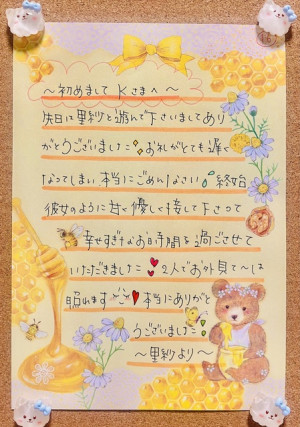 ～初めまして Kさまへ～
先日は里紗と遊んで下さいましてあり
がとうございました お礼がとても遅く
なってしまい本当にごめんなさい 終始
彼女のように甘く優しく接して下さって
幸せすぎなお時間を過ごさせて
いただきました 2人でお外見て～は
照れます 本当にありがと
うございました
～里紗より～